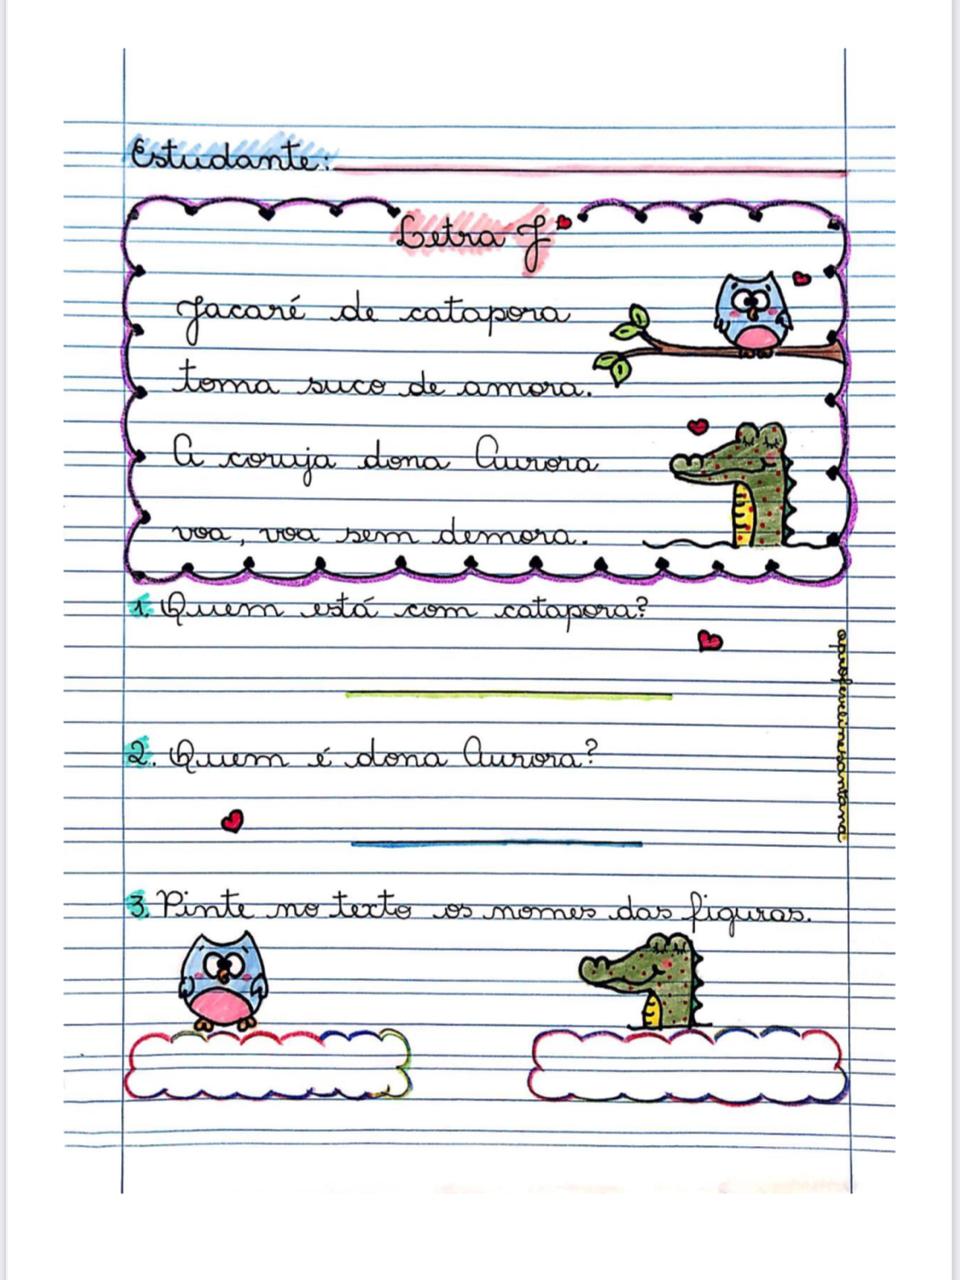 Estudante:
Letra J
Jacaré de catapora
toma suco de amora.
A coruja dona Aurora
voa, voa sem demora.
1. Quem está com catapora?
2. Quem é dona Aurora?
3. Pinte no texto os nomes das figuras.